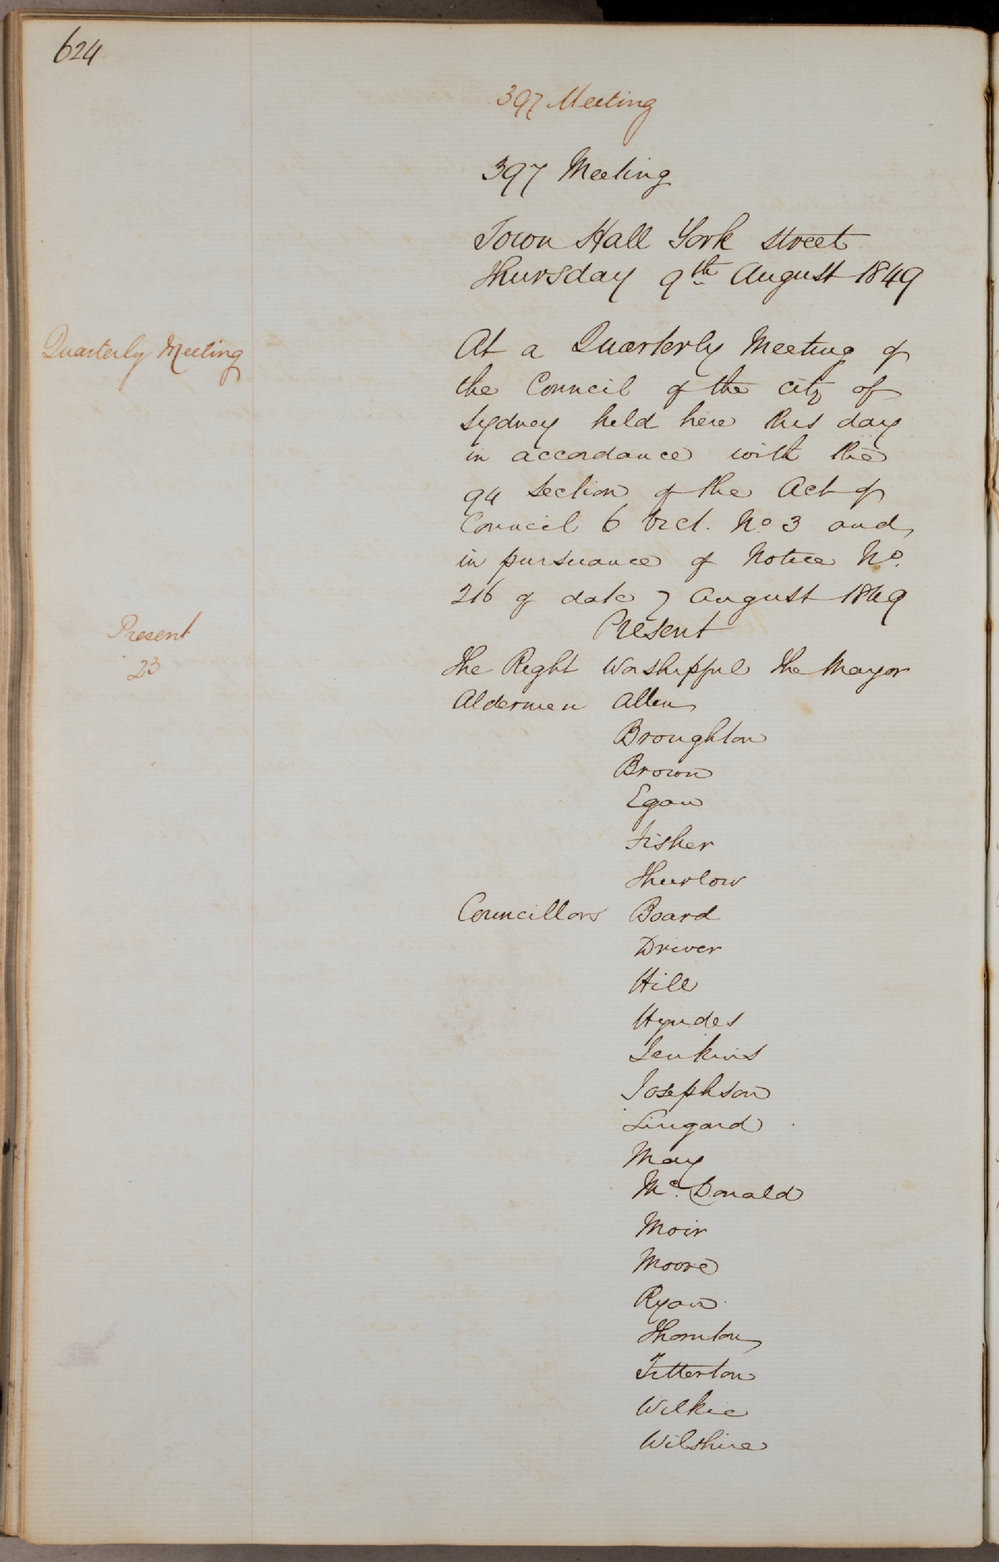 624
397 Meeting
397 Meeting
Town Hall York Street
Thursday 9th August 1849
Quarterly Meeting
At a Quarterly Meeting of
the Council of the city of
Sydney held here this day
in accordance with the
94 Section of the Act of
Council 6 Vict. No 3 and
in pursuance of Notice No.
216 of date 7 August 1849
Present
Present
23
The Right Worshipful The Mayor
Aldermen Allen
Broughton
Brown
Egan
Fisher
Thurlow
Councillors Board
Driver
Hill
Hyndes
Jenkins
Josephson
Lingard
May
Mc. Donald
Moir
Moore
Ryan
Thornton
Titterton
Wilkie
Wilshire